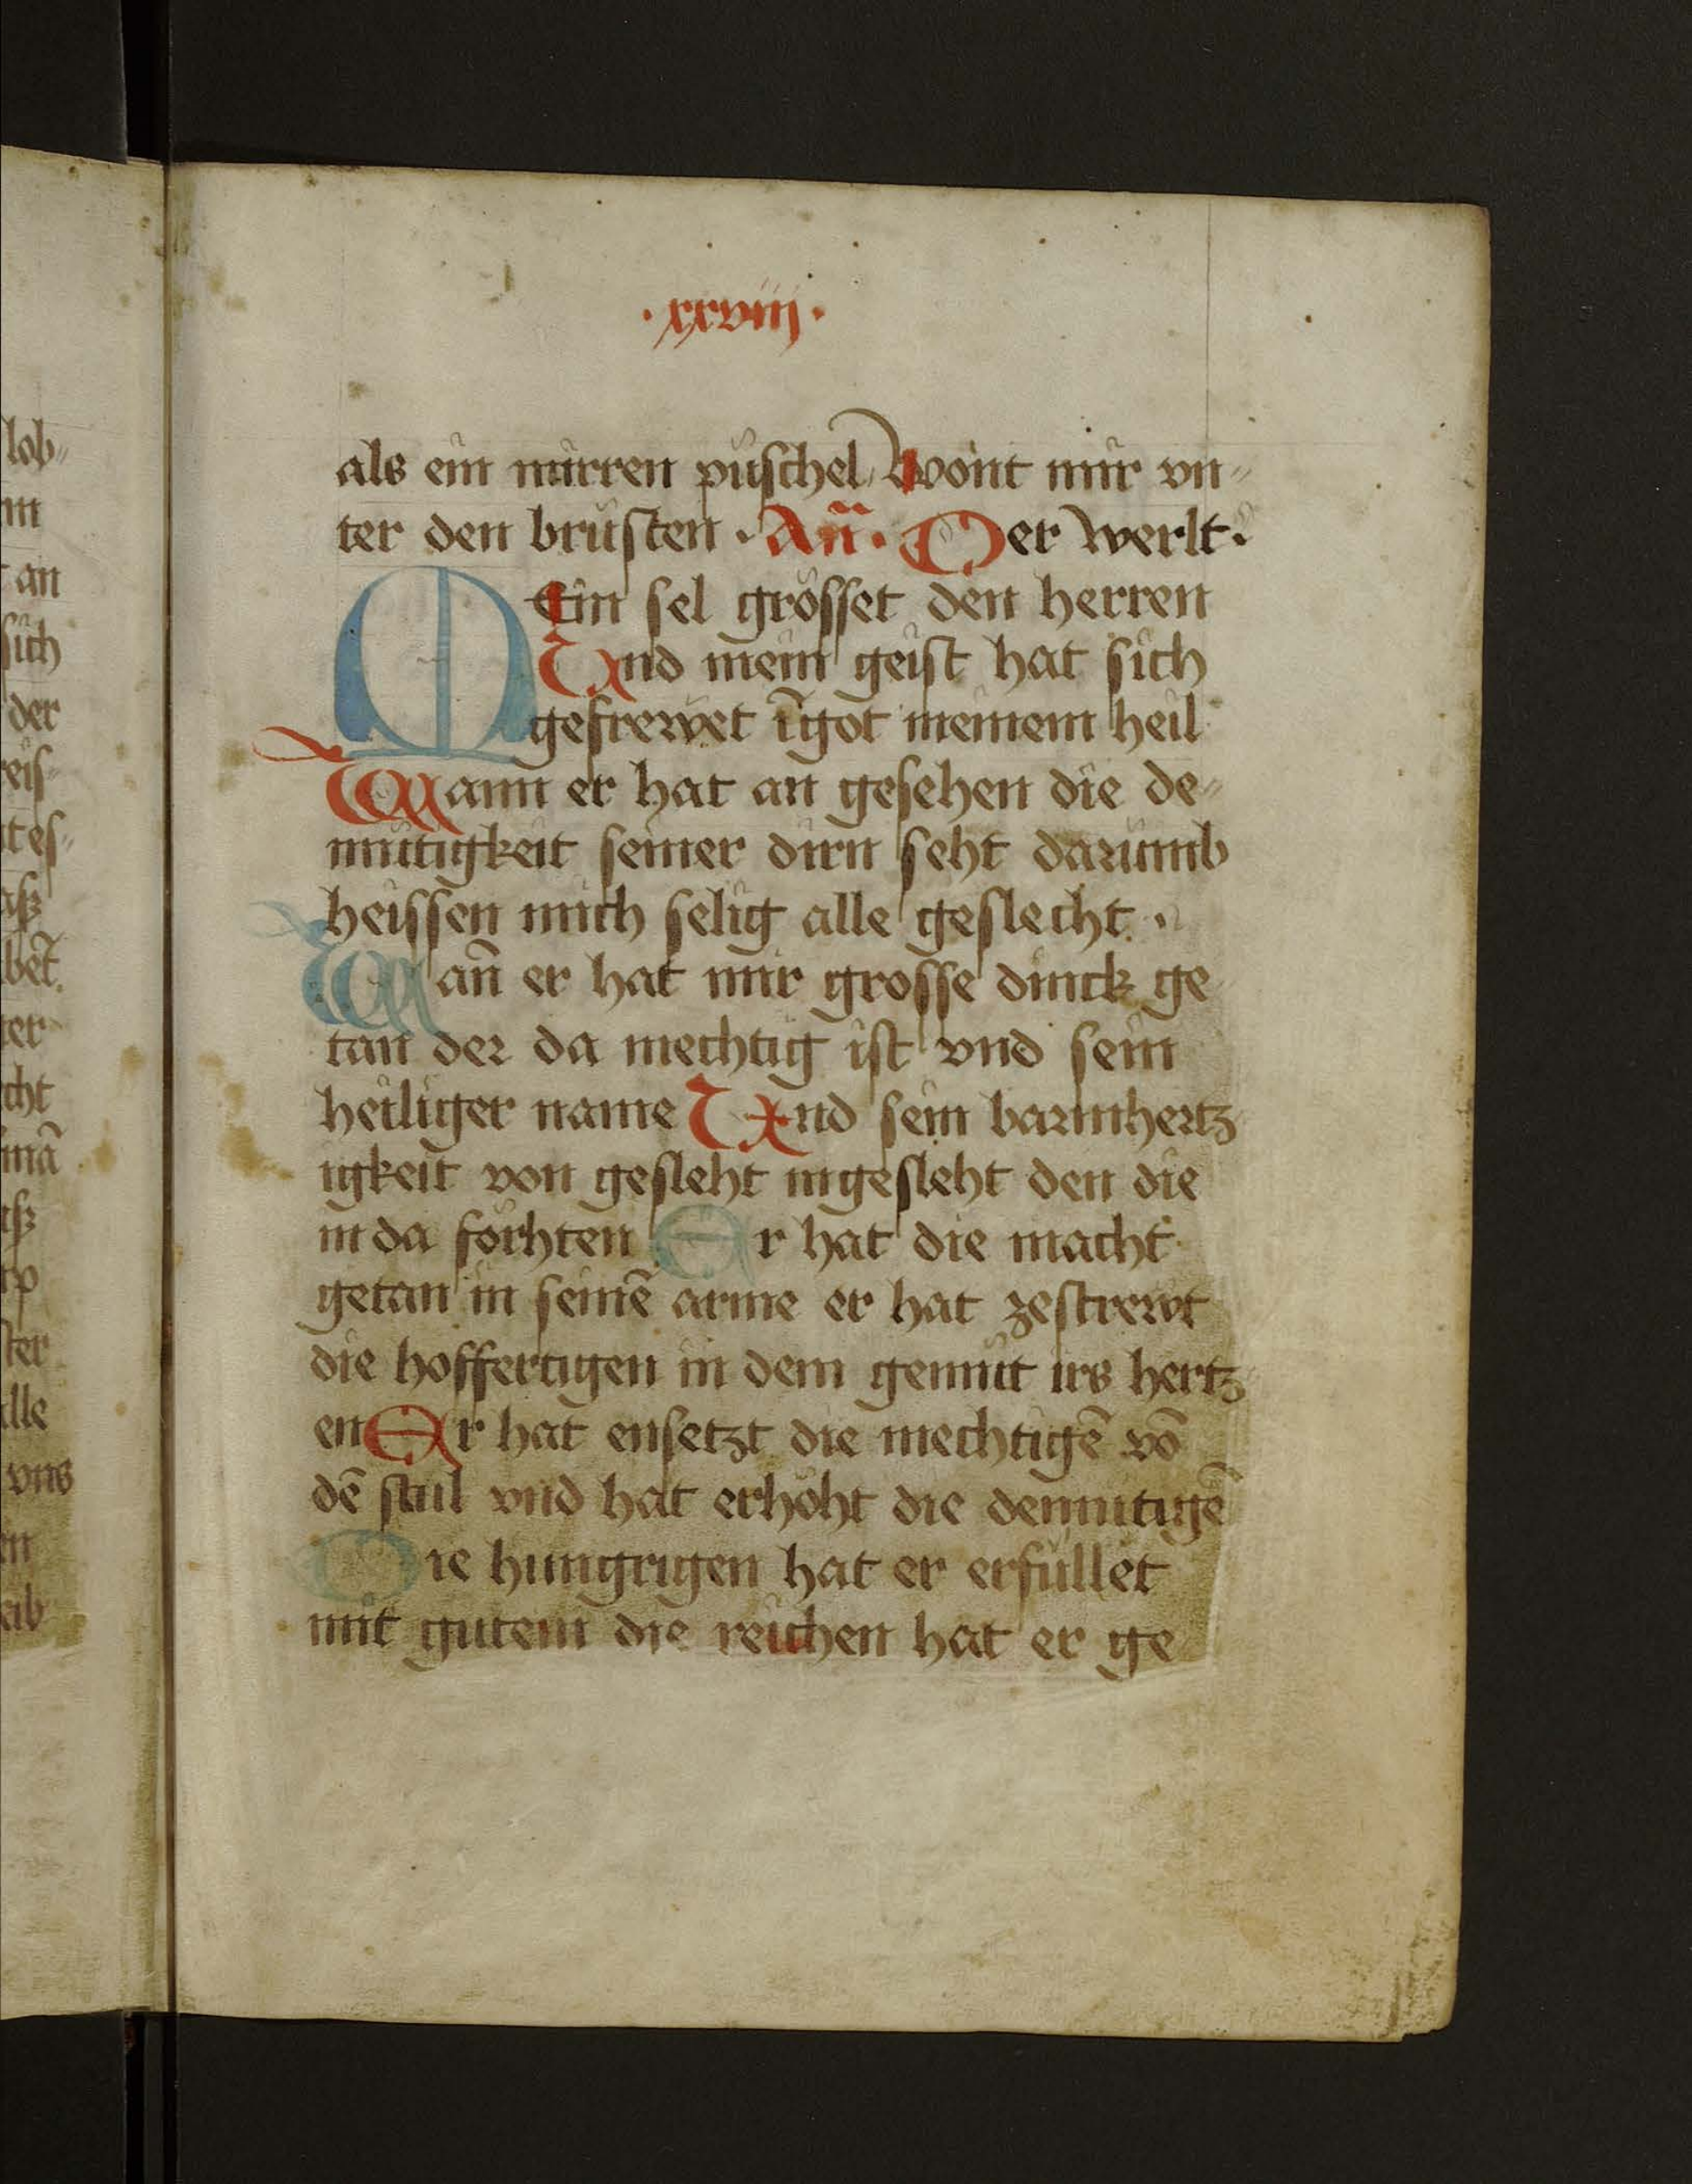 lob
·xxviij·
als ein mirren puschel wont mir vn
ter den brüsten · An̄· Der werlt·
MEin sel grösset den herren
Und mein geist hat sich
gefrewet ī got meinem heil
Wann er hat an gesehen die de
mütigkeit seiner dirn seht darumb
heissen mich selig alle geslecht ·
Wan̄ er hat mir grosse dinck ge
tan der da mechtig ist vnd sein
heiliger name Und sein barmhertz
igkeit von gesleht in gesleht den die
in da förhten Er hat die macht
getan in seinē arme er hat zestrewt
die hoffertigen in dem gemüt irs hertz
en Er hat ensetzt die mechtigē vō
dē stul vnd hat erhöht die demutigē
Die hungrigen hat er erfüllet
mit gutem die reichen hat er ge
an
sich
der
reis
tes
bet̄
ter
cht
mā
ster
alle
vns